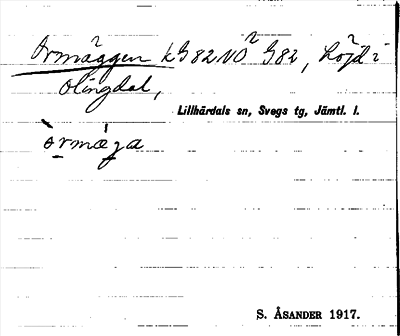 Ormäggen k G82NO G82, höjd i
Olingdal,
Lillhärdals sn, Svegs tg, Jämtl. l.
òrmæga
S. ÅSANDER 1917.